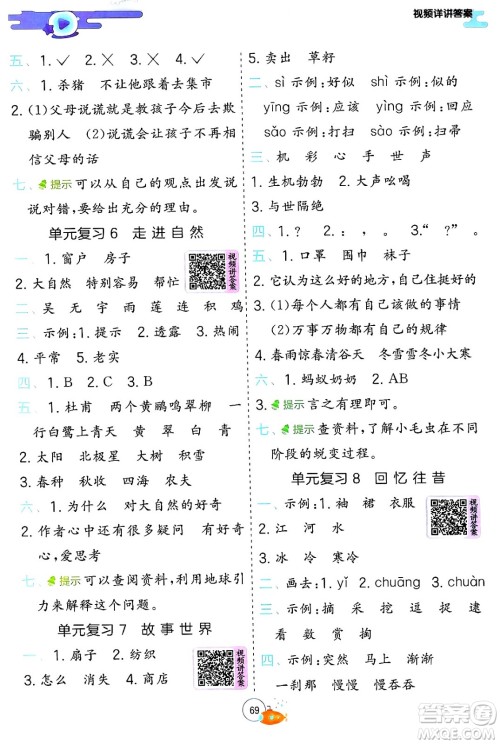 视频详讲答案
五、1.✓ 2.✗ 3.✗ 4.✓
六、1.杀猪 不让他跟着去集市
2.(1)父母说谎是教孩子今后去欺
骗别人 (2)说谎会让孩子不再相
信父母的话
七、提示 可以从自己的观点出发说
说对错,要给出充分的理由。
单元复习6 走进自然
一、1.窗户 房子
2.大自然 特别容易 帮忙
视频讲答案
二、吴 无 宇 雨 莲 连 积 鸡
三、示例:1.提示 2.透露 3.热闹
4.平常 5.老实
四、1.C 2.B 3.A 4.B
五、1.杜甫 两个黄鹂鸣翠柳 一
行白鹭上青天 黄 翠 白 青
2.太阳 北极星 大树 积雪
3.春种 秋收 四海 农夫
六、1.为什么 对大自然的好奇
2.作者心中还有很多疑问 有
无穷无尽的奥秘
七、提示 可以查阅资料,利用地球引
力来解释这个问题。
单元复习7 故事世界
一、1.扇子 2.纺织
3.怎么 消失 4.商店
视频讲答案
5.卖出 草籽
二、sì 示例:好似 shì 示例:似的
yīng 示例:应该 yìng 示例:回应
sǎo 示例:打扫 sào 示例:扫帚
三、机 彩 心 手 世 声
1.生机勃勃 2.大声吆喝
3.与世隔绝
四、1.! ? 2., :“ ?”
五、1.口罩 围巾 袜子
2.它认为这么好的地方,自己住挺好的
3.(1)每个人都有自己该做的事情
(2)万事万物都有自己的规律
4.春雨惊春清谷天 冬雪雪冬小大寒
六、1.C 1.蚂蚁奶奶 2.AB
3.提示 言之有理即可。
七、提示 查资料,了解小毛虫在不同
阶段的蜕变过程。
单元复习8 回忆往昔
一、示例:1.袖 裙 衣服
2.江 河 水
3.冰 冷 寒冷
视频讲答案
二、画去:1.yǐ 2.chuāng 3.chuàn
三、示例:摘 采 挖 逗 捉 逮
看 数 赏 掏
四、示例:突然 马上 渐渐
一刹那 慢慢 慢吞吞
69